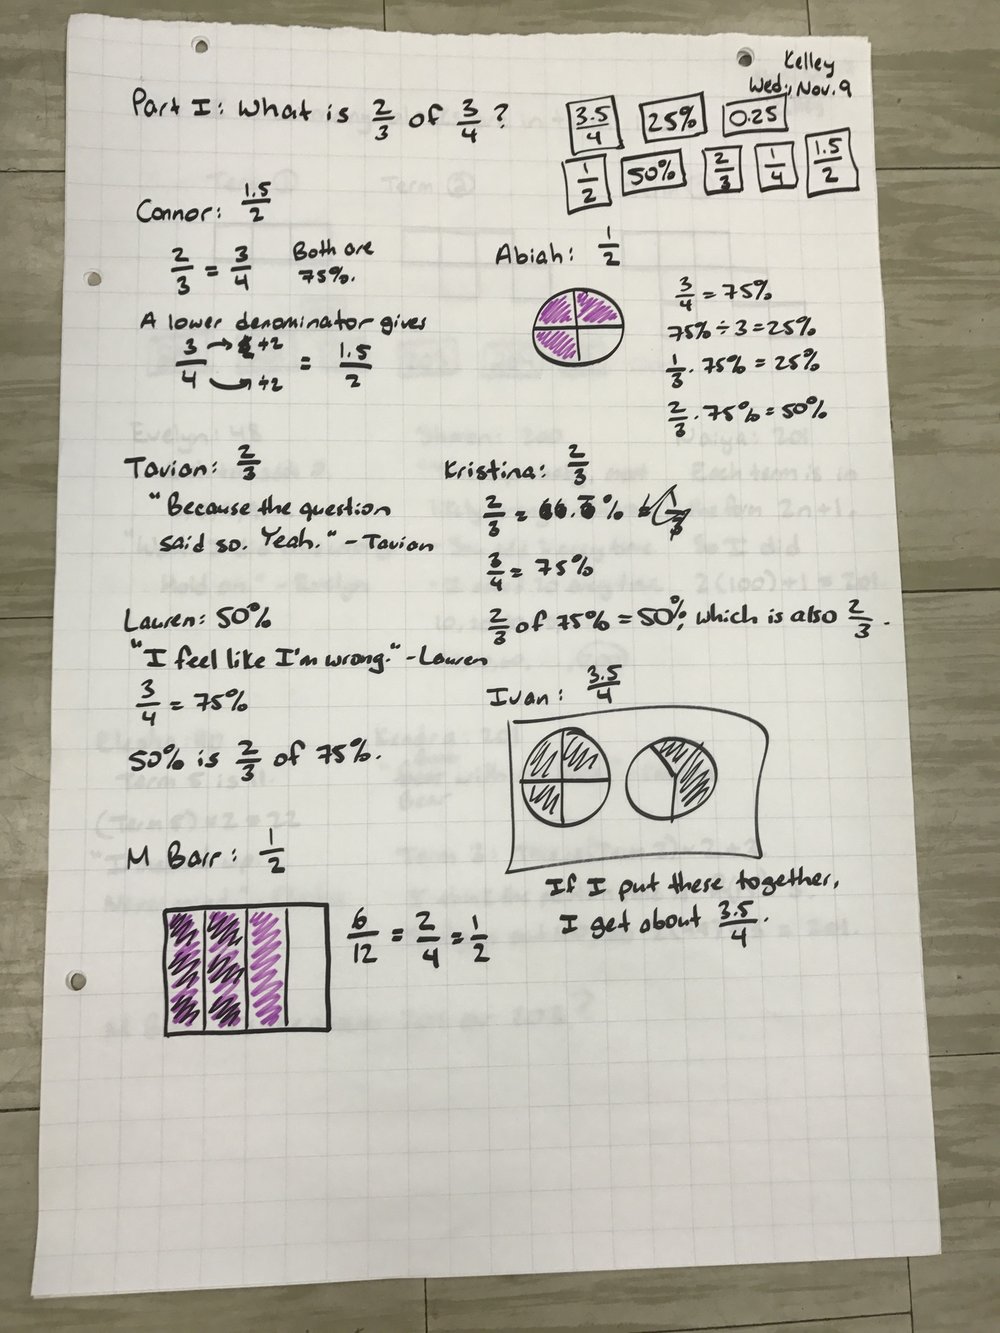 Kelley
Wed, Nov. 9
Part I: What is 2/3 of 3/4?
3.5/4 25% 0.25
1/2 50% 2/3 1/4 1.5/2
Connor: 1.5/2
2/3 = 3/4 Both are
75%.
A lower denominator gives
3/4 → ÷2 → ÷2 = 1.5/2
Abiah: 1/2
3/4 = 75%
75% ÷ 3 = 25%
1/3 · 75% = 25%
2/3 · 75% = 50%
Tavian: 2/3
"Because the question
said so. Yeah." - Tavian
Kristina: 2/3
2/3 = 66.6%
3/4 = 75%
2/3 of 75% = 50%, which is also 2/3.
Lauren: 50%
"I feel like I'm wrong." - Lauren
3/4 = 75%
50% is 2/3 of 75%.
Ivan: 3.5/4
If I put these together,
I get about 3.5/4.
M Barr: 1/2
6/12 = 2/4 = 1/2